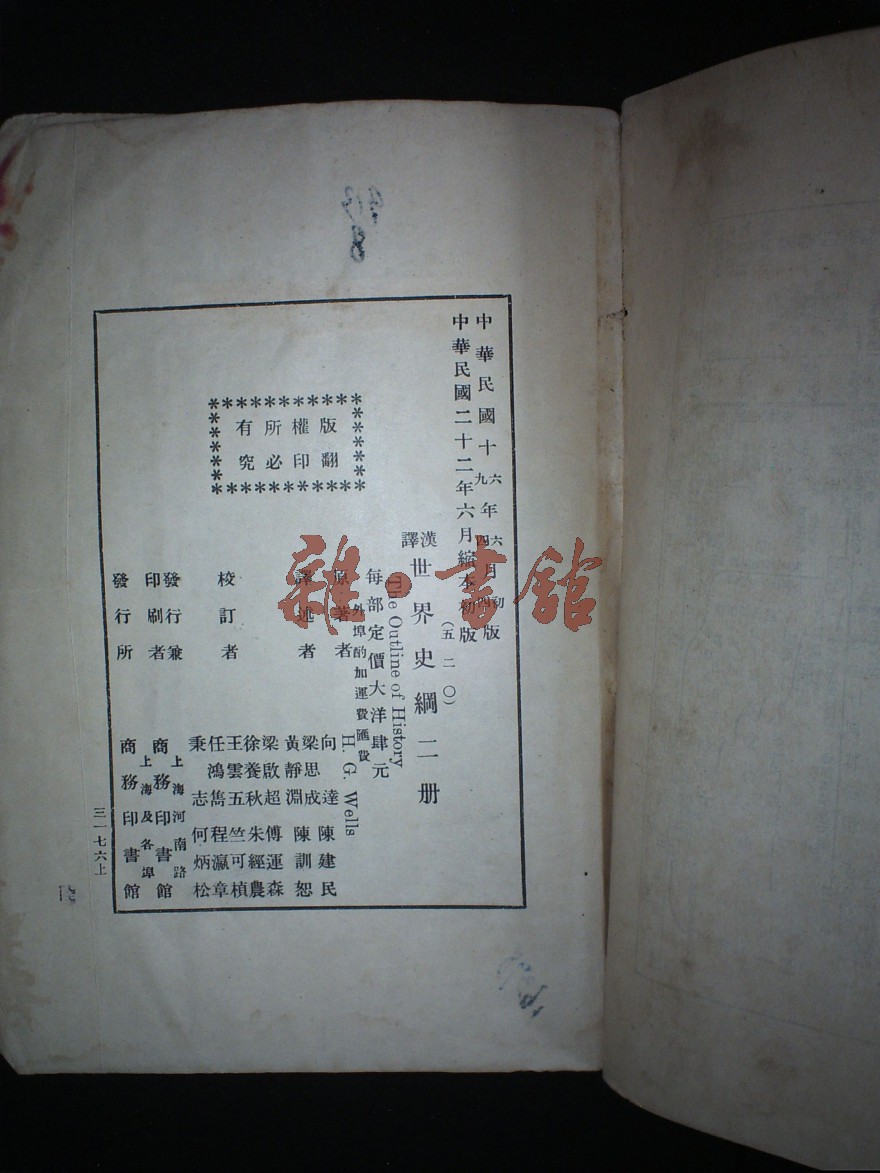 中華民國十六年六月初版
九 四 四
中華民國二十二年六月縮本初版
(五二〇)
漢譯世界史綱二册
The Outline of History
每部定價大洋肆元
外埠酌加運費匯費
原著者 H. G. Wells
譯述者 向達 陳建民
梁思成 陳訓恕
黃靜淵
校訂者 梁啟超 傅運森
徐養秋 朱經農
王雲五 竺可楨
任鴻雋 程瀛章
秉志 何炳松
發行兼印刷者 上海河南路 商務印書館
發行所 上海及各埠 商務印書館
版權所有
翻印必究
三一七六上
雜·書館